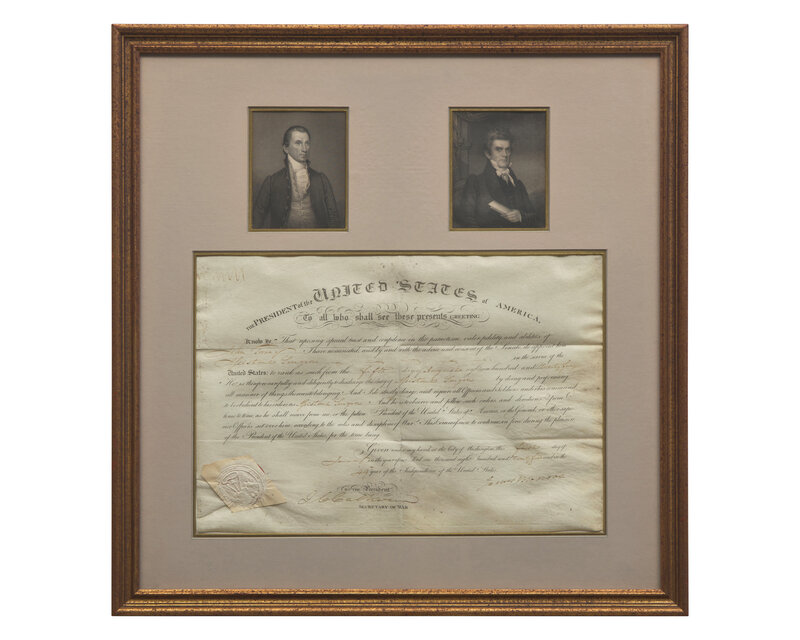 THE PRESIDENT of the UNITED STATES of AMERICA,
To all who shall see these presents GREETING:
Know Ye That reposing special trust and confidence in the patriotism, valor, fidelity and abilities of
I have nominated, and by and with the advice and consent of the Senate, do appoint him
Assistant Surgeon in the service of the
United States: to rank as such from the fifth day of August eighteen hundred and twenty
He is therefore carefully and diligently to discharge the duty of Assistant Surgeon by doing and performing
all manner of things thereunto belonging. And I do strictly charge, and require all Officers and Soldiers under his command
to be obedient to his orders as Assistant Surgeon And he is to observe and follow such orders, and directions from
time to time, as he shall receive from me, or the future President of the United States of America, or the General, or other supe-
rior Officers set over him, according to the rules and discipline of War. This Commission to continue in force during the pleasure
of the President of the United States, for the time being.
Given under my hand at the City of Washington this day of
in the year of our Lord one thousand eight hundred and and in the
year of the Independence of the United States.
By the President
James Monroe
J. C. Calhoun
SECRETARY OF WAR